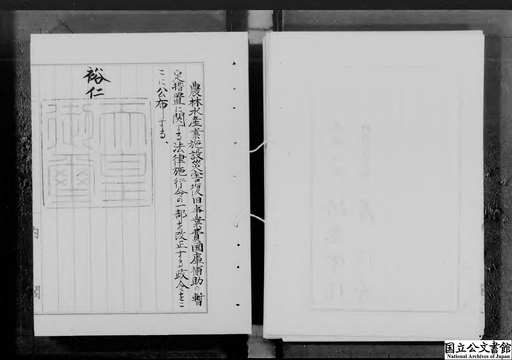 農林水産業施設災害復旧事業費国庫補助の暫
定措置に関する法律施行令の一部を改正する政令をこ
こに公布する。
裕仁
天皇
御璽
内閣
国立公文書館
National Archives of Japan